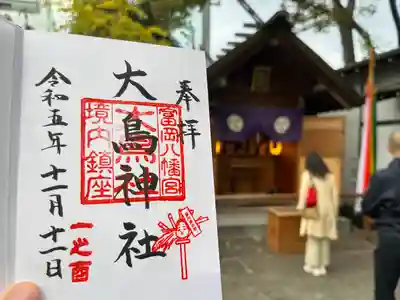 奉拝
富岡八幡宮
大鳥神社
境内鎮座
令和五年十一月十一日
一之酉